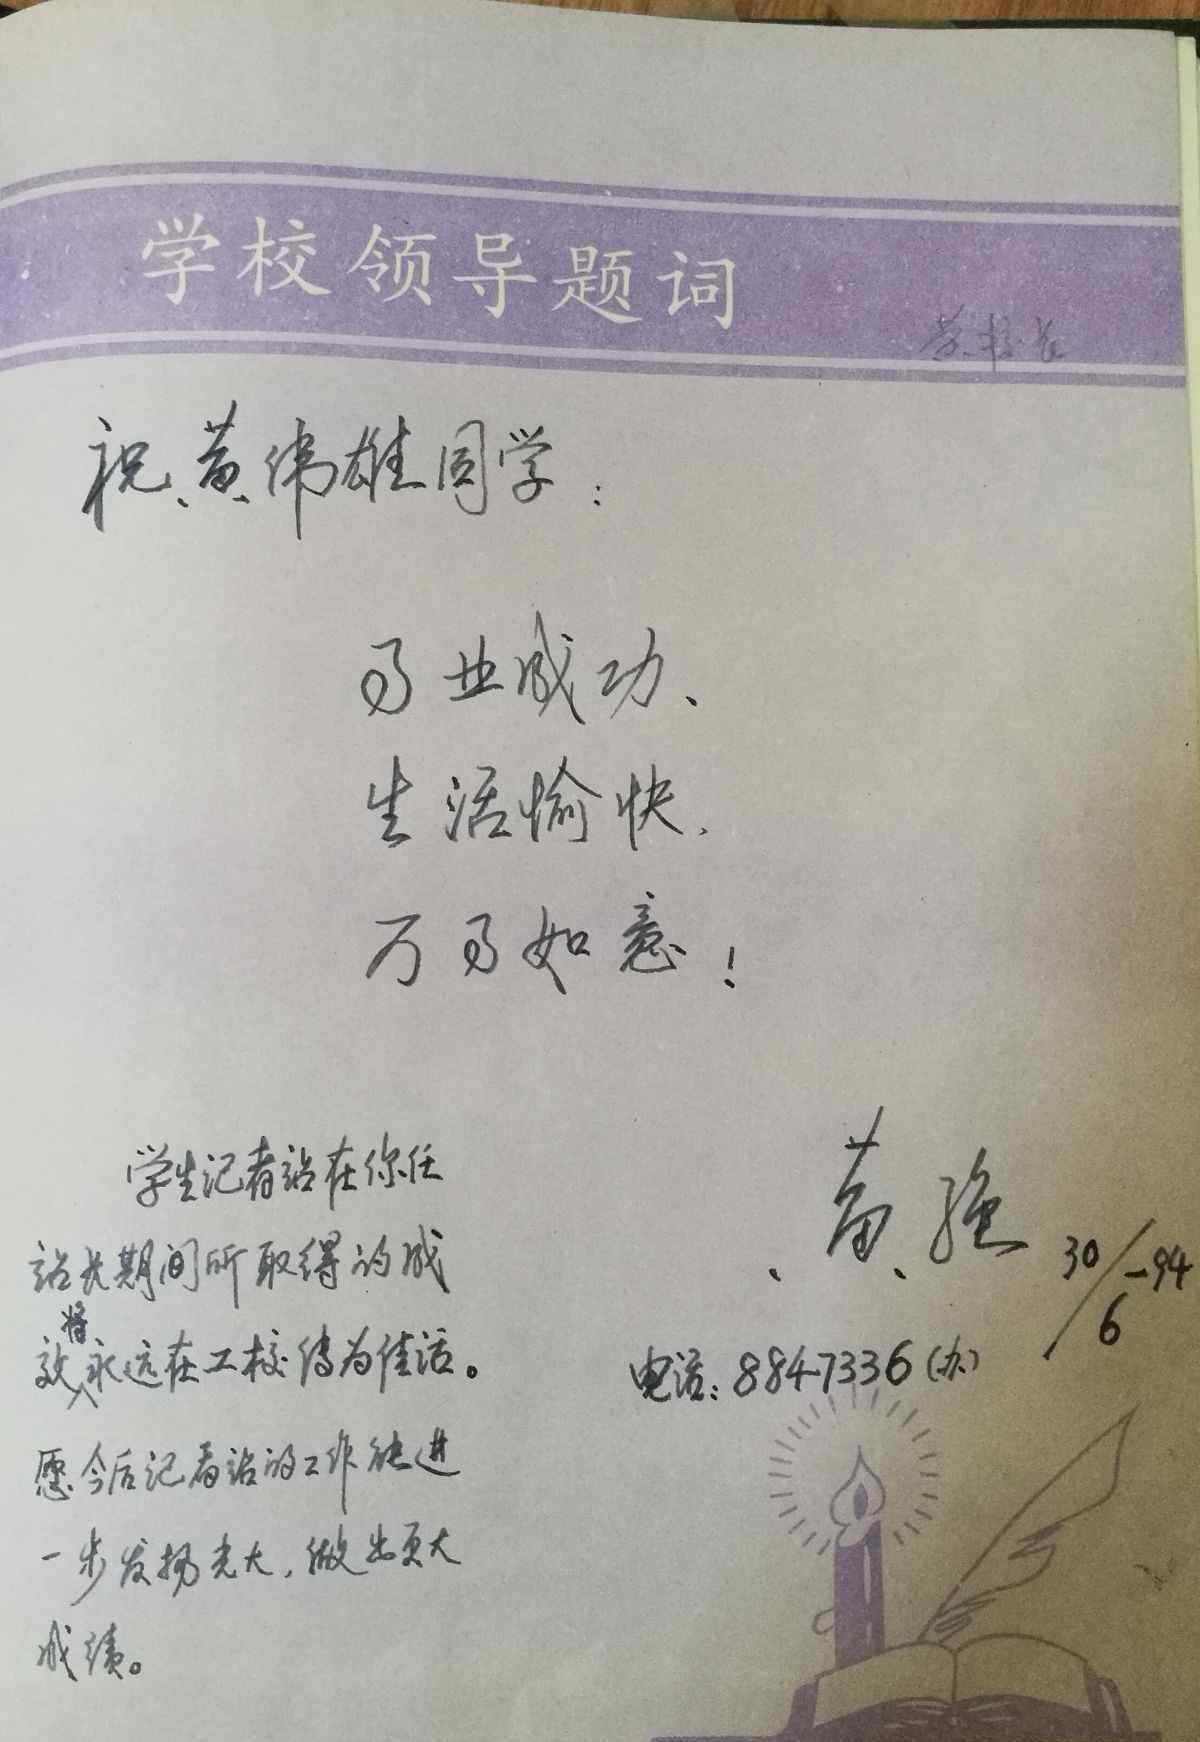 学校领导题词
黄校长
祝黄伟雄同学:
事业成功、
生活愉快、
万事如意!
学生记者站在你任
站长期间所取得的成
效将永远在工校传为佳话。
愿今后记者站的工作能进
一步发扬光大,做出更大
成绩。
黄强
30/6-94
电话:8847336(办)